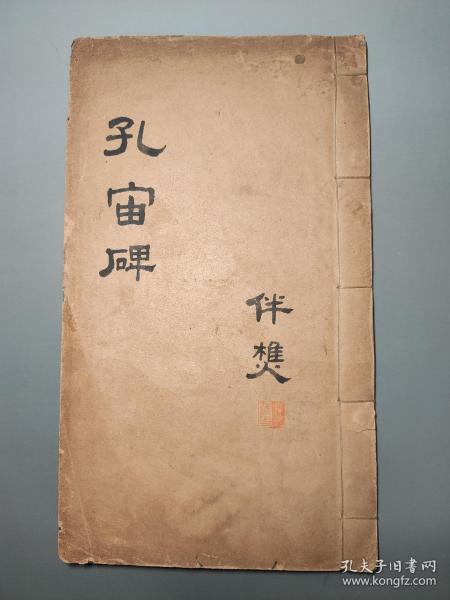 孔宙碑
伴樵
孔夫子旧书网
www.kongfz.com